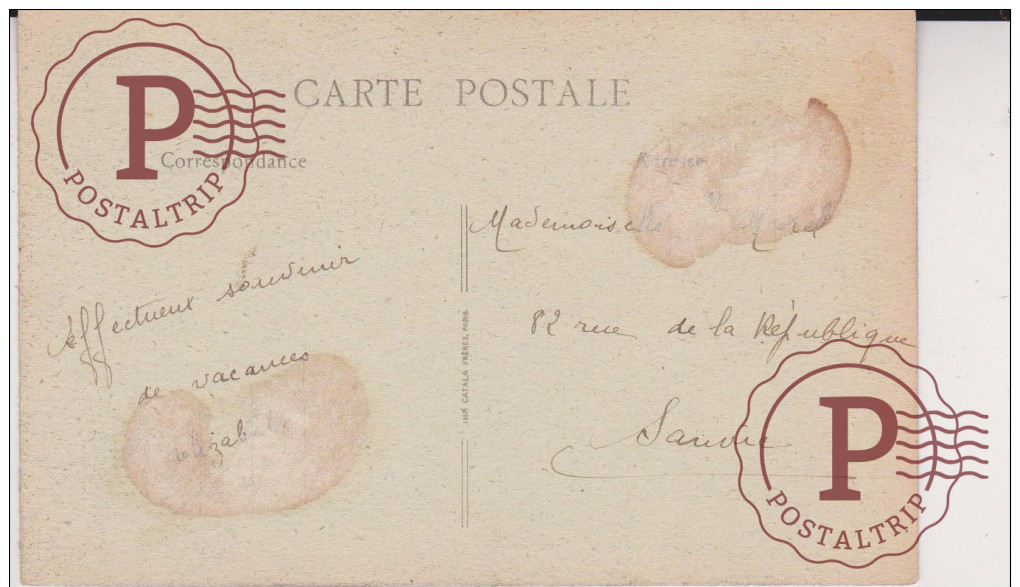 CARTE POSTALE
Correspondance
Adresse
Mademoiselle
affectueux souvenir
de vacances
Elizabeth
82 rue de la République
IMP. CATALA FRÈRES, PARIS
P
POSTALTRIP
P
POSTALTRIP